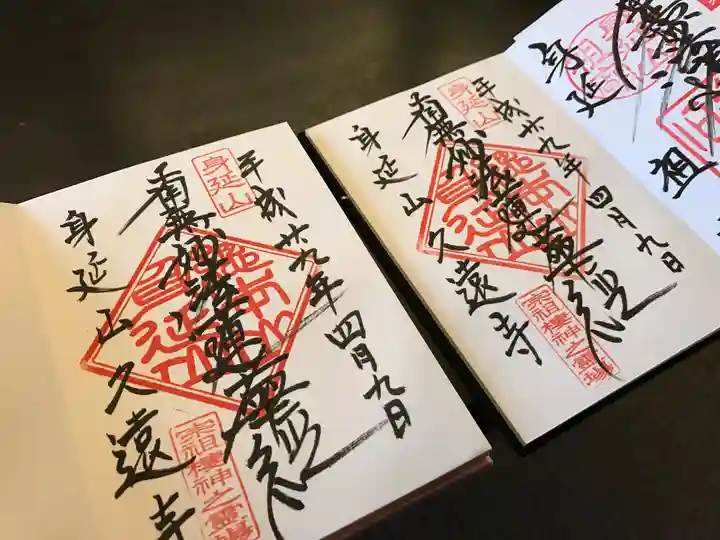 平成廿九年四月九日
身延山
南無妙法蓮華経
宗祖棲神之霊場
身延山久遠寺
平成廿九年四月九日
身延山
南無妙法蓮華経
宗祖棲神之霊場
身延山久遠寺
身延
祖